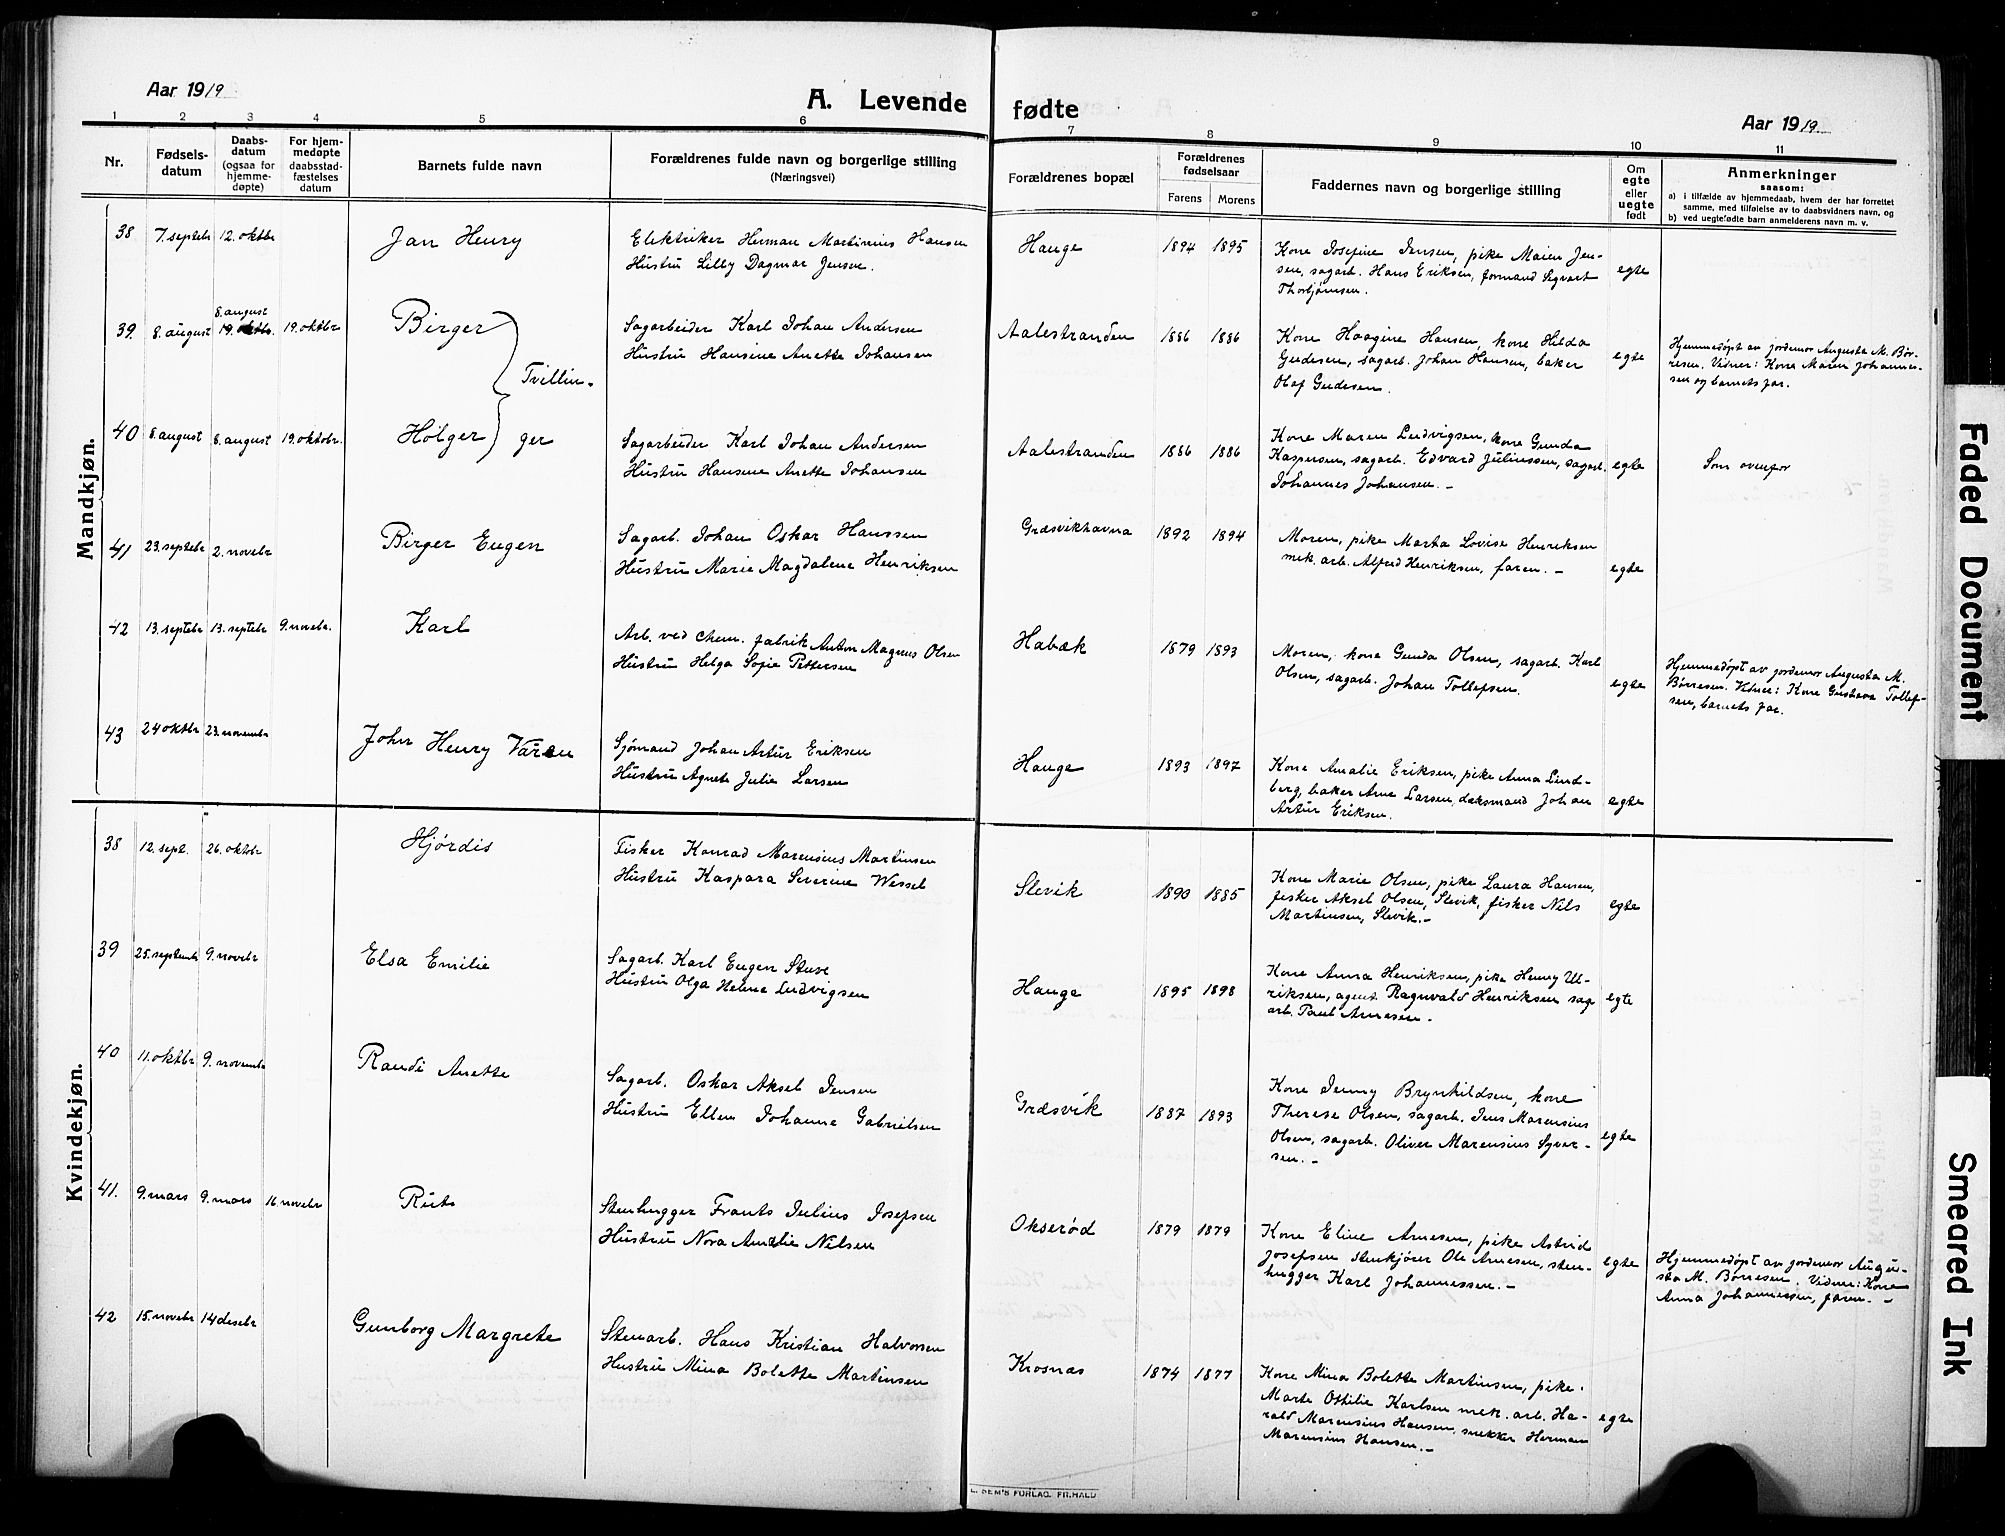 Aar 1919
A. Levende fødte
Aar 1919
1 2 3 4 5 6 7 8 9 10 11
Nr.
Fødsels-
datum
Daabs-
datum
(ogsaa for
hjemme-
døpte)
For hjem-
medøpte
daabsstad-
fæstelses
datum
Barnets fulde navn
Forældrenes fulde navn og borgerlige stilling
(Næringsvei)
Forældrenes bopæl
Forældrenes
fødselsaar
Farens Morens
Faddernes navn og borgerlige stilling
Om
egte
eller
uegte
født
Anmerkninger
saasom:
a) i tilfælde av hjemmedaab, hvem der har forrettet
samme, med tilføielse av to daabsvidners navn, og
b) ved uegtefødte barn anmelderens navn m. v.
Mandkjøn.
38 7. septebr 12. oktbr
Jan Henry
Elektriker Herman Martinius Hansen
Hustru Lilly Dagmar Jensen.
Hauge 1894 1895
Kone Josefine Jensen, pike Maien Jen-
sen, sagarb. Hans Eriksen, formand Sigvart
Thorbjørnsen.
egte
39. 8. august 8. august 19. oktb. 19. oktbr
Birger
Tvillin-
Sagarbeider Karl Johan Andersen
Hustru Hansine Anette Johansen
Aalestranden 1886 1886
Kone Haagine Hansen, kone Hilda
Gudesen, sagarb. Johan Hansen, baker
Olaf Gudesen.
egte
Hjemmedøpt av jordemor Augusta M. Bør-
resen. Vidner: Kone Maren Johannes-
sen og barnets far.
40 8. august 8. august 19. oktobr.
Holger
ger
Sagarbeider Karl Johan Andersen
Hustru Hansine Anette Johansen
Aalestranden 1886 1886
Kone Maren Ludvigsen, kone Gunda
Kaspersen, sagarb. Edvard Juliussen, sagarb.
Johannes Johansen. —
egte
Som ovenfor
41 23. septebr 2. novebr
Birger Eugen
Sagarb. Johan Oskar Hanssen
Hustru Marie Magdalene Henriksen
Græsvikhavna 1892 1894
Moren, pike Marta Lovise Henriksen
mek. arb. Alfred Henriksen, faren. —
egte
42 13. septebr 13. septebr 9. novebr.
Karl
Arb. ved chem. fabrik Anton Magnus Olsen
Hustru Helga Sofie Pettersen
Habæk 1879 1893
Moren, kone Gunda Olsen, sagarb. Karl
Olsen, sagarb. Johan Tollefsen.
egte
Hjemmedøpt av jordemor Augusta M.
Børresen. Vidner: Kone Gustava Tollef-
sen, barnets far.
43 24 oktbr 23. novembr
John Henry Varen
Sjømand Johan Artur Eriksen
Hustru Agnete Julie Larsen
Hauge 1893 1897
Kone Amalie Eriksen, pike Anna Lind-
berg, baker Arne Larsen, dæksmand Johan
Artur Eriksen.
egte
Kvindekjøn.
38 12. sept. 26. oktobr
Hjørdis
Fisker Konrad Marensius Martinsen
Hustru Kaspara Severine Wessel
Slevik 1890 1885
Kone Marie Olsen, pike Laura Hansen,
fisker Aksel Olsen, Slevik, fisker Nils
Martinsen, Slevik. —
egte
39 25. septembr 9. novebr
Elsa Emilie
Sagarb. Karl Eugen Stuve
Hustru Olga Helene Ludvigsen
Hauge 1895 1898
Kone Anna Henriksen, pike Henny Ul-
riksen, agent Ragnvald Henriksen sag
arb. Paul Arnesen. —
egte
40 11. oktbr 9. novembr
Randi Anette
Sagarb. Oskar Aksel Jensen
Hustru Ellen Johanne Gabrielsen
Græsvik 1887 1893
Kone Jenny Brynhildsen, kone
Therese Olsen, sagarb. Jens Marensius
Olsen, sagarb. Oliver Marensius Syver-
sen. —
egte
41. 9. mars 9. mars 16 novebr
Rut
Stenhugger Frants Julius Josefsen
Hustru Nora Amalie Nilsen
Okserød 1879 1879
Kone Eline Arnesen, pike Astrid
Josefsen stenkjører Ole Arnesen, sten-
hugger Karl Johannessen. —
egte
Hjemmedøpt av jordemor Augu-
sta M. Børresen. Vidner: Kone
Anna Johannessen, faren. —
42 15. novebr 14 desebr
Gunborg Margrete
Stenarb. Hans Kristian Halvorsen
Hustru Mina Bolette Martinsen
Krosnæs 1874 1877
Kone Mina Bolette Martinsen, pike
Marte Othilie Karlsen mek. arb. Ha-
rald Marensius Hansen, snekker Herman
Marensius Hansen. —
egte
E. SEM'S FORLAG, FR.HALD
Faded Document
Smeared Ink